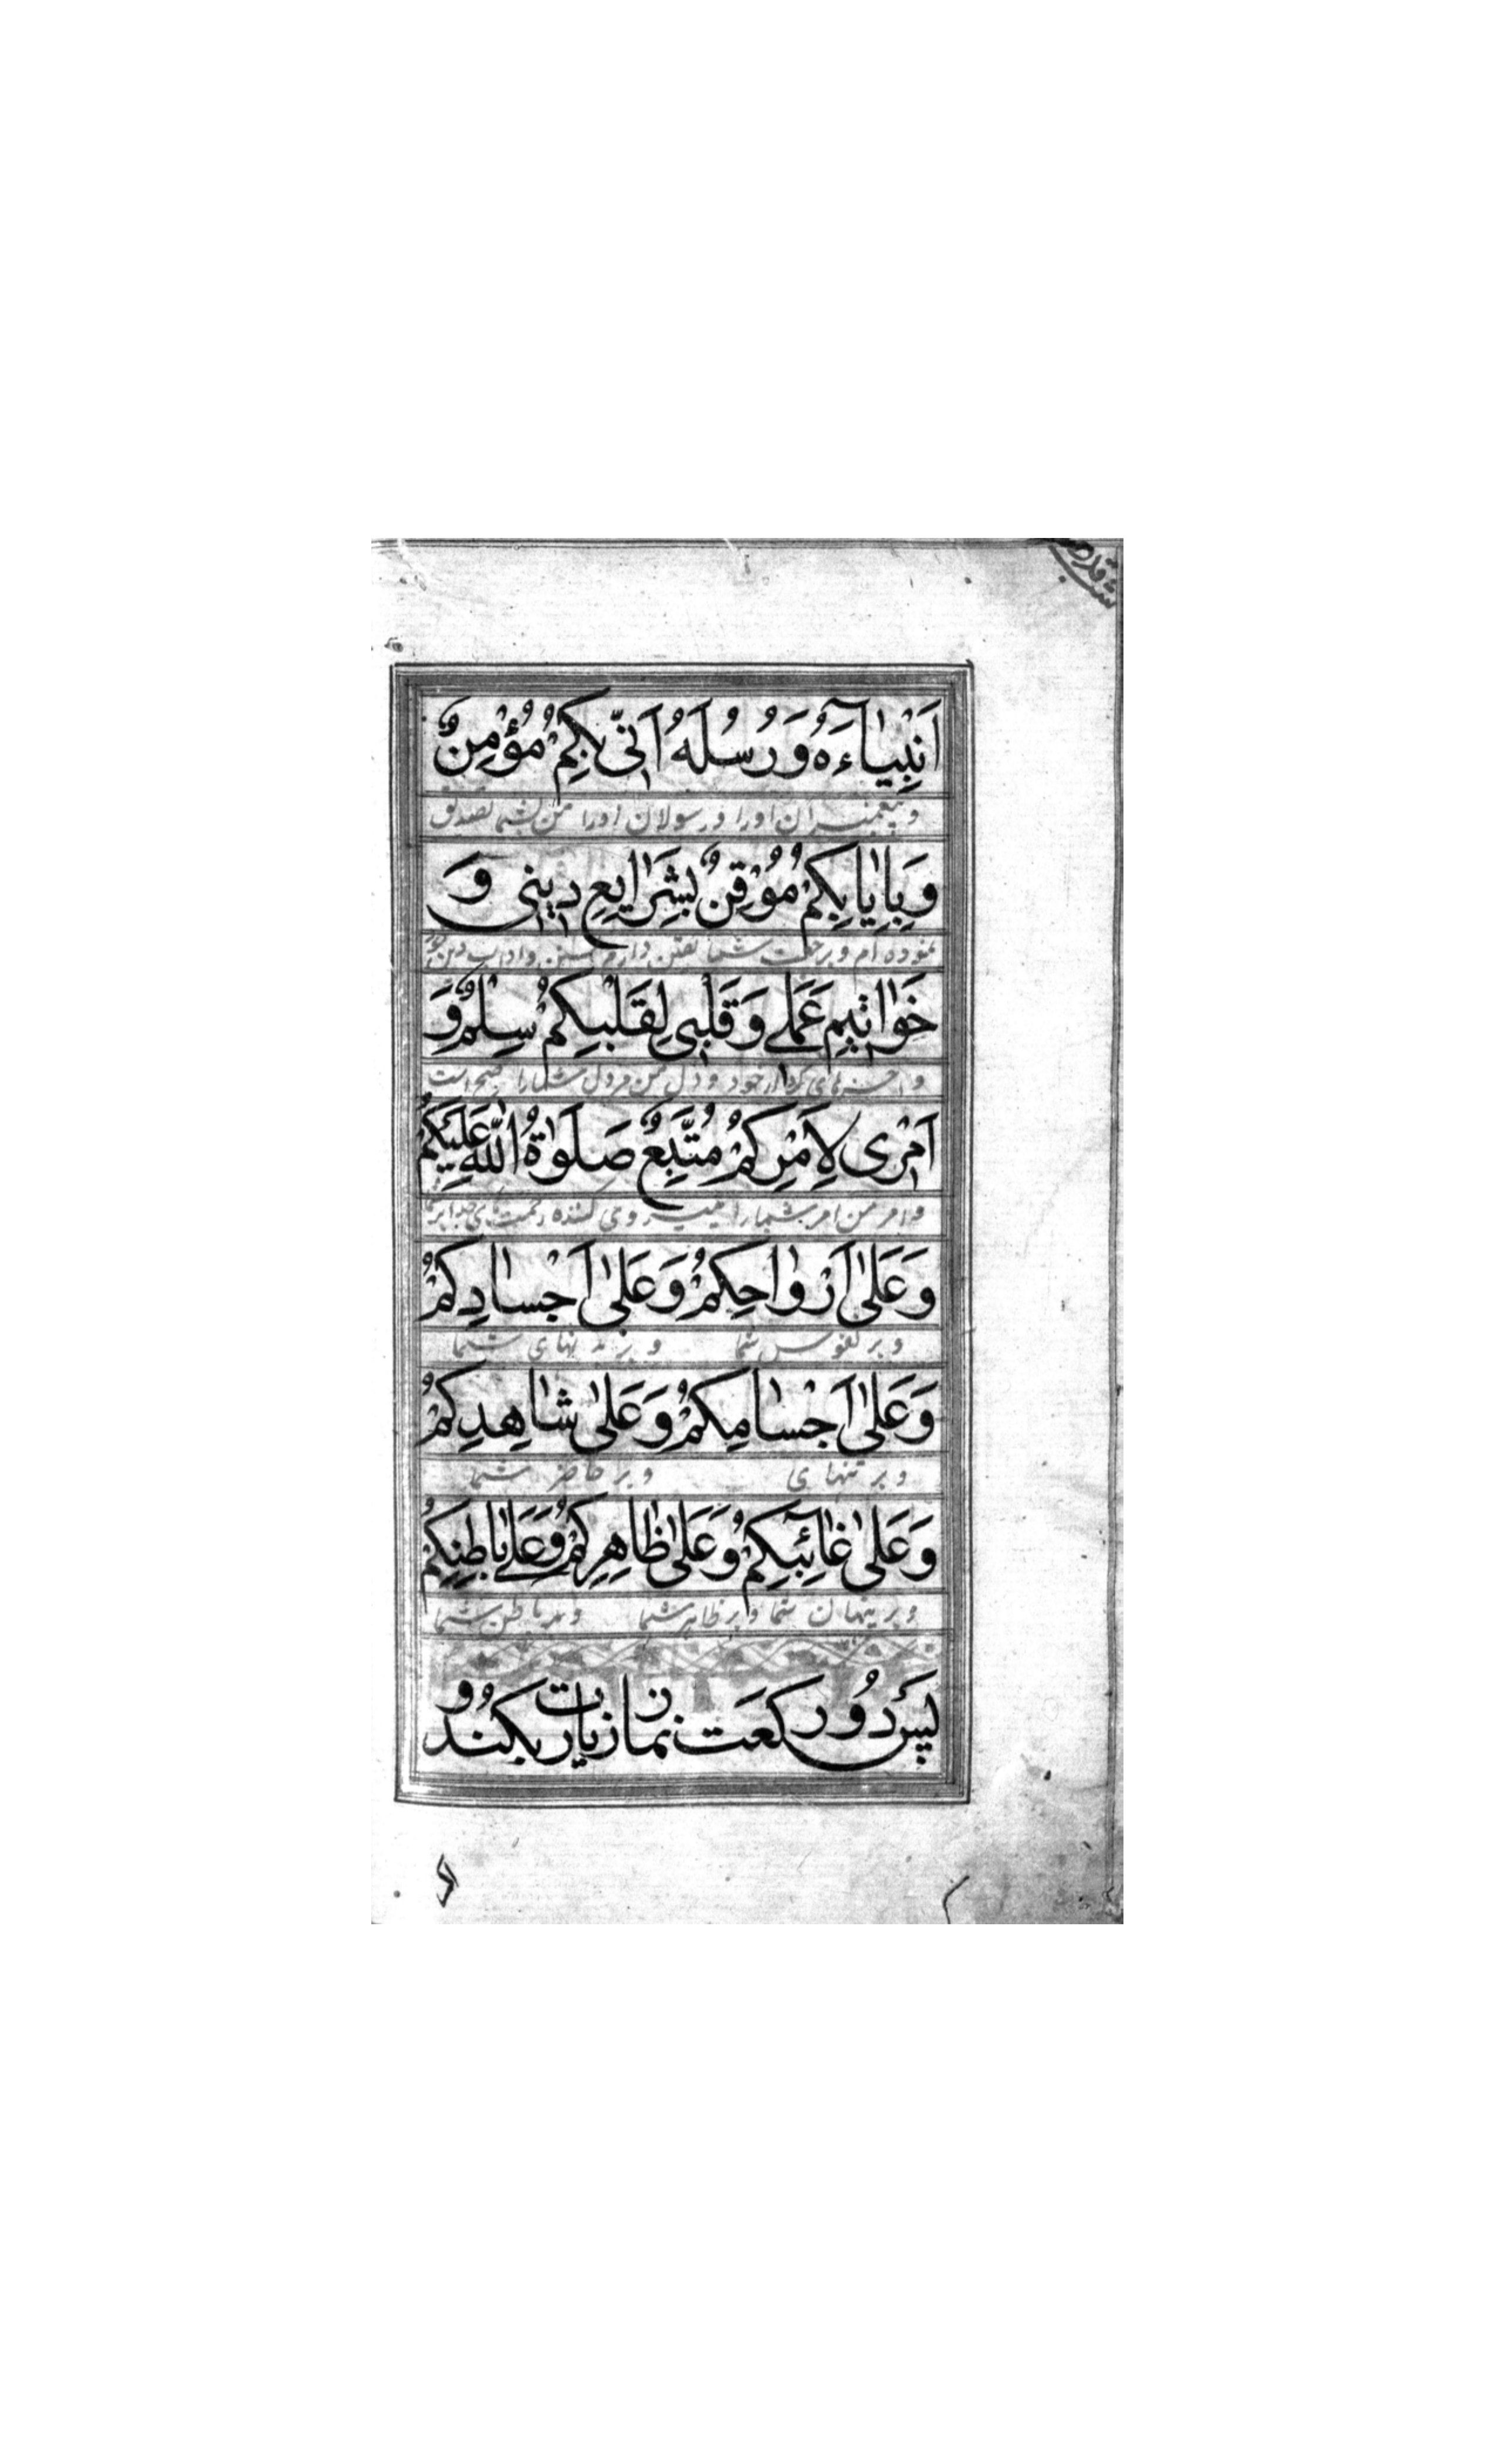 شب قدر
اَنْبِيٰآءَهُ وَ رُسُلَهُ اَنّى بِكُمْ مُؤْمِنٌ
و پیغمبران او را و رسولان او را من بشما تصدیق
وَ بِاِيٰابِكُمْ مُوْقِنٌ بِشَرٰايِعِ دينى وَ
نموده ام و برجعت شما یقین دارم و اداب دین خود
خَوٰاتيمِ عَمَلى وَ قَلْبى لِقَلْبِكُمْ سِلْمٌ وَ
و اخرهای کردار خود و دل من مر دل شما را صلح است
اَمْرى لِاَمْرِكُمْ مُتَّبِعٌ صَلَوٰةُ اللّٰهِ عَلَيْكُمْ
و امر من امر شما را پیروی کننده رحمت های خدا بر شما
وَ عَلىٰ اَرْوٰاحِكُمْ وَ عَلىٰ اَجْسٰادِكُمْ
و بر نفوس شما و بر بدنهای شما
وَ عَلىٰ اَجْسٰامِكُمْ وَ عَلىٰ شٰاهِدِكُمْ
و بر تنهای و بر حاضر شما
وَ عَلىٰ غٰآئِبِكُمْ وَ عَلىٰ ظٰاهِرِكُمْ وَ عَلىٰ بٰاطِنِكُمْ
و بر پنهان شما و بر ظاهر شما و بر باطن شما
پَس دُو رکعَت نماز زیارت بکُند و